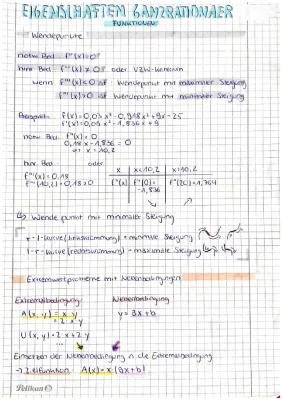 EIGENSCHAFTEN GANZRATIONALER
FUNKTIONEN
Wendepunkte
notw. Bed. f"(x)=0
hinr. Bed. f'''(x)≠0 oder VZW-Kriterium
wenn f'''(x)<0 ist Wendepunkt mit maximaler Steigung
f'''(x)>0 ist Wendepunkt mit minimaler Steigung
Beispiel: f(x)=0,03x³-0,918x²+9x-25
f'(x)=0,09x²-1,836x+9
notw. Bed. f"(x)=0
0,18x-1,836=0
x=10,2
hinr. Bed. oder
f'''(x)=0,18
f'''(10,2)=0,18>0
x x<10,2 x>10,2
f"(x) f"(0)=-1,836 f"(20)=1,764
↳ Wendepunkt mit minimaler Steigung
r-l-Kurve = minimale Steigung
l-r-Kurve = maximale Steigung
Extremwertprobleme mit Nebenbedingungen
Extremalbedingung Nebenbedingung
A(x,y)=x·y y=3x+b
U(x,y)=2x+2y
...
Einsetzen der Nebenbedingung in die Extremalbedingung
→ Zielfunktion: A(x)=x·(3x+b)
Pelikan